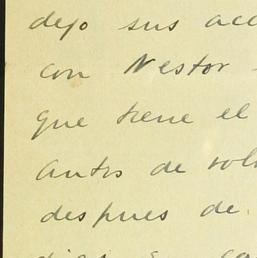 dejo sus acc
con Nestor -
que tiene el
antes de vol
despues de